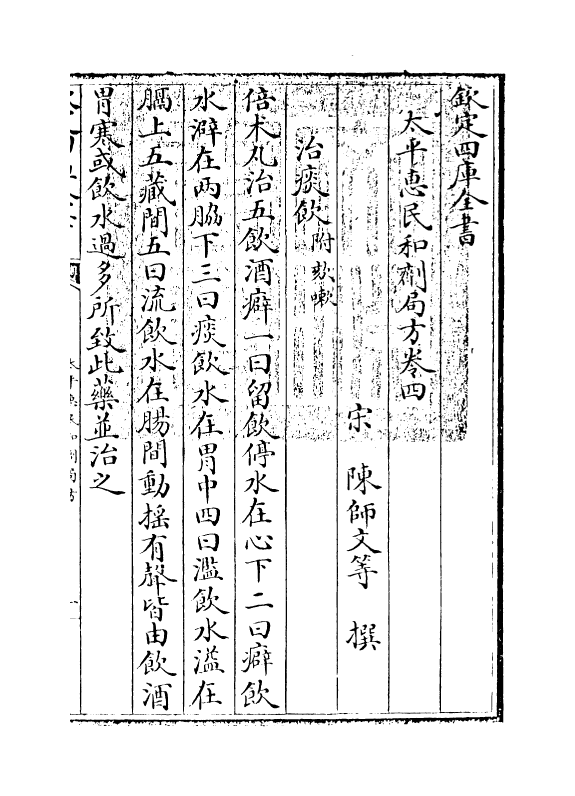 欽定四庫全書
太平惠民和劑局方卷四
宋 陳師文等 撰
治痰飲附欬嗽
倍术丸治五飲酒癖一曰留飲停水在心下二曰癖飲
水澼在兩脇下三曰痰飲水在胃中四曰溢飲水溢在
膈上五藏間五曰流飲水在腸間動摇有聲皆由飲酒
胃寒或飲水過多所致此藥並治之